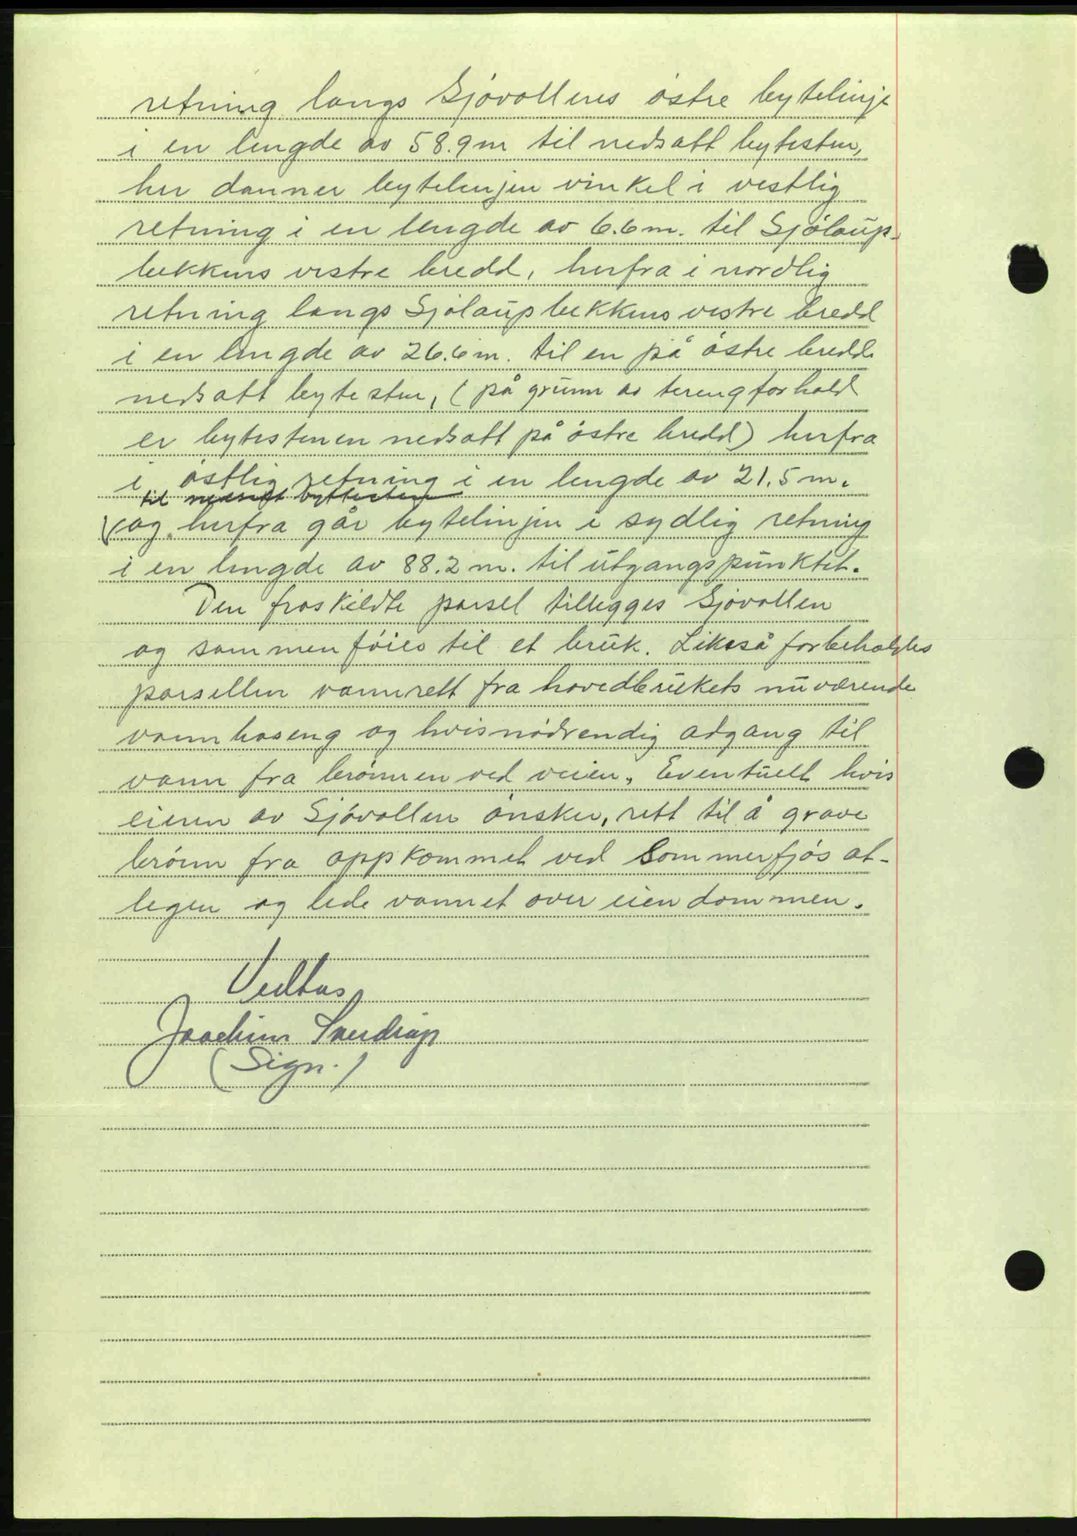 retning langs Sjøvollens østre bytelinje
i en lengde av 58.9 m til nedsatt bytesten,
her danner bytelinjen vinkel i vestlig
retning i en lengde av 6.6 m. til Sjølaup-
bekkens vestre bredd, herfra i nordlig
retning langs Sjølaupbekkens vestre bredd
i en lengde av 26.6 m. til en på østre bredd
nedsatt bytesten, (på grunn av terengforhold
er bytestenen nedsatt på østre bredd) herfra
i østlig retning i en lengde av 21.5 m.
til nedsatt byttesten
og herfra går bytelinjen i sydlig retning
i en lengde av 88.2 m. til utgangspunktet.
Den fraskildte parsel tillegges Sjøvollen
og sammenføies til et bruk. Likeså forbeholdes
parsellen vannrett fra hovedbrukets nuværende
vannbaseng og hvis nødvendig adgang til
vann fra brønnen ved veien. Eventuelt hvis
eieren av Sjøvollen ønsker, rett til å grave
brønn fra oppkommet ved Sommerfjøs at-
legen og lede vannet over eiendommen.
Vedtas
Joachim Sverdrup
(Sign.)